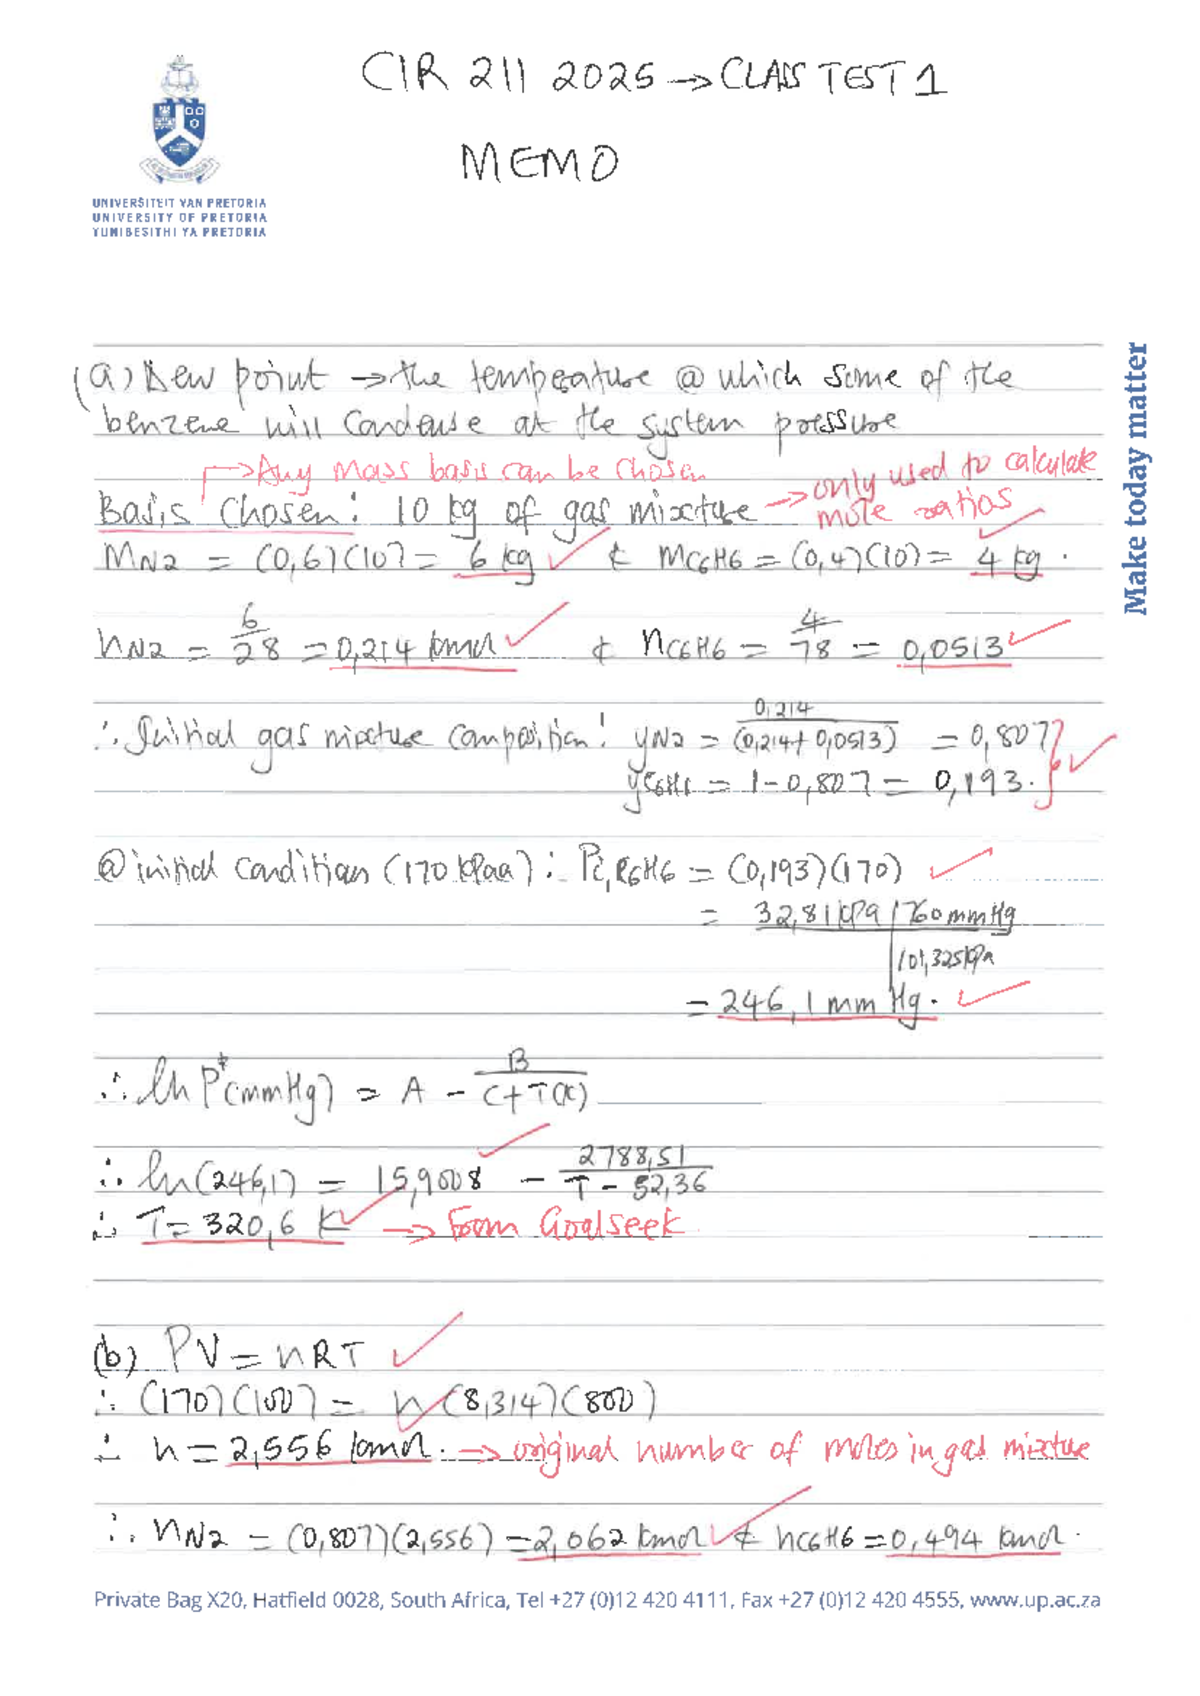 CIR 211 2025 → CLASS TEST 1
MEMO
UNIVERSITEIT VAN PRETORIA
UNIVERSITY OF PRETORIA
YUNIBESITHI YA PRETORIA
Make today matter
(a) Dew point → the temperature @ which some of the
benzene will condense at the system pressure
→ Any mass basis can be chosen
Basis Chosen: 10 kg of gas mixture → only used to calculate mole ratios
MN2 = (0,6)(10) = 6 kg & MC6H6 = (0,4)(10) = 4 kg.
nN2 = 6/28 = 0,214 kmol & nC6H6 = 4/78 = 0,0513
∴ Initial gas mixture composition: yN2 = 0,214/(0,214+0,0513) = 0,807
yC6H6 = 1-0,807 = 0,193.
@ initial condition (170 kPaa): Pc,R6H6 = (0,193)(170)
= 32,81 kPa | 760 mmHg
101,325 kPa
= 246,1 mm Hg.
∴ ln P*(mmHg) = A - B/(C+T(K))
∴ ln(246,1) = 15,9008 - 2788,51/(T-52,36)
∴ T = 320,6 K → From Goalseek
(b) PV = nRT
∴ (170)(100) = n(8,314)(800)
∴ n = 2,556 kmol. → original number of moles in gas mixture
∴ nN2 = (0,807)(2,556) = 2,062 kmol & nC6H6 = 0,494 kmol.
Private Bag X20, Hatfield 0028, South Africa, Tel +27 (0)12 420 4111, Fax +27 (0)12 420 4555, www.up.ac.za